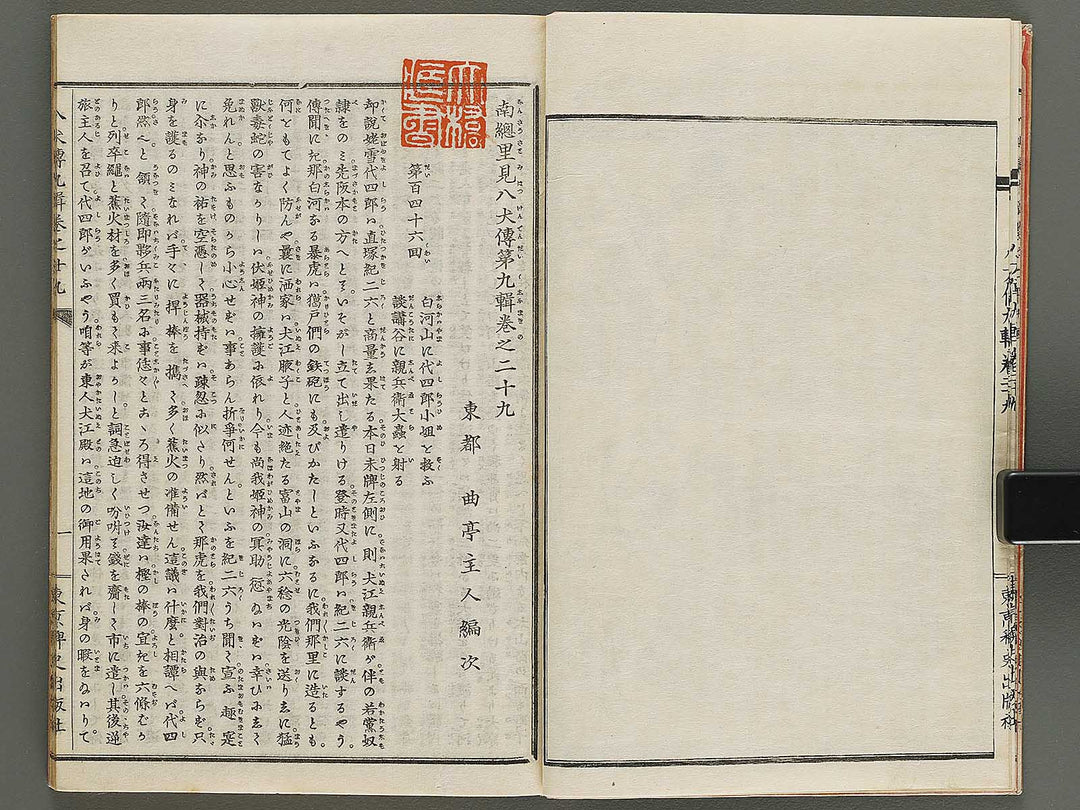 南總里見八犬傳第九輯卷之二十九
東都 曲亭主人編次
第百四十六回
白河山に代四郎小姐を救ふ
談講谷に親兵衛大蟲を射る
却説姥雪代四郎ハ直塚紀二六と商量志果たる本日未牌左側に則犬江親兵衛が伴の若黨奴
隷をのミ先阪本の方へとていそがし立て出し遣りける登時又代四郎ハ紀二六に談するやう
傳聞に九那白河なる暴虎ハ獦戸們の鉄砲にも及びかたしといふなるに我們那里に造るとも
何ともてよく防んや曩に洒家ハ犬江腋子と人迹絶たる富山の洞に六稔の光陰を送り志に猛
獸毒蛇の害なかりしハ伏姫神の擁護に依れり今も尚我姫神の冥助愆ぬハ幸ひに志て
免れんと思ふものから小心せずハ事あらん折爭何せんといふを紀二六うち聞て宣ふ趣寔
に介なり神の祐を空憑して器械持ずハ疎忽に似さり然バとて那虎を我們對治の與ならず只
身を護るのミなれバ手々に捍棒を携て多く蕉火の准備せん這議ハ什麼と相譚へバ代四
郎然へと頷て隨即夥兵兩三名に事恁々とこゝろ得させつ汝達ハ樫の棒の宜きを六條ばか
りと列卒繩と蕉火材を多く買もて来よかしと詞急迫しく吩咐て錢を齎して市に遣し其後逆
旅主人を召て代四郎がいふやう咱等が東人犬江殿ハ這地の御用果されバ身の暇をぬハりて
八犬傳九輯卷之廿九
一
東京稗史出版社